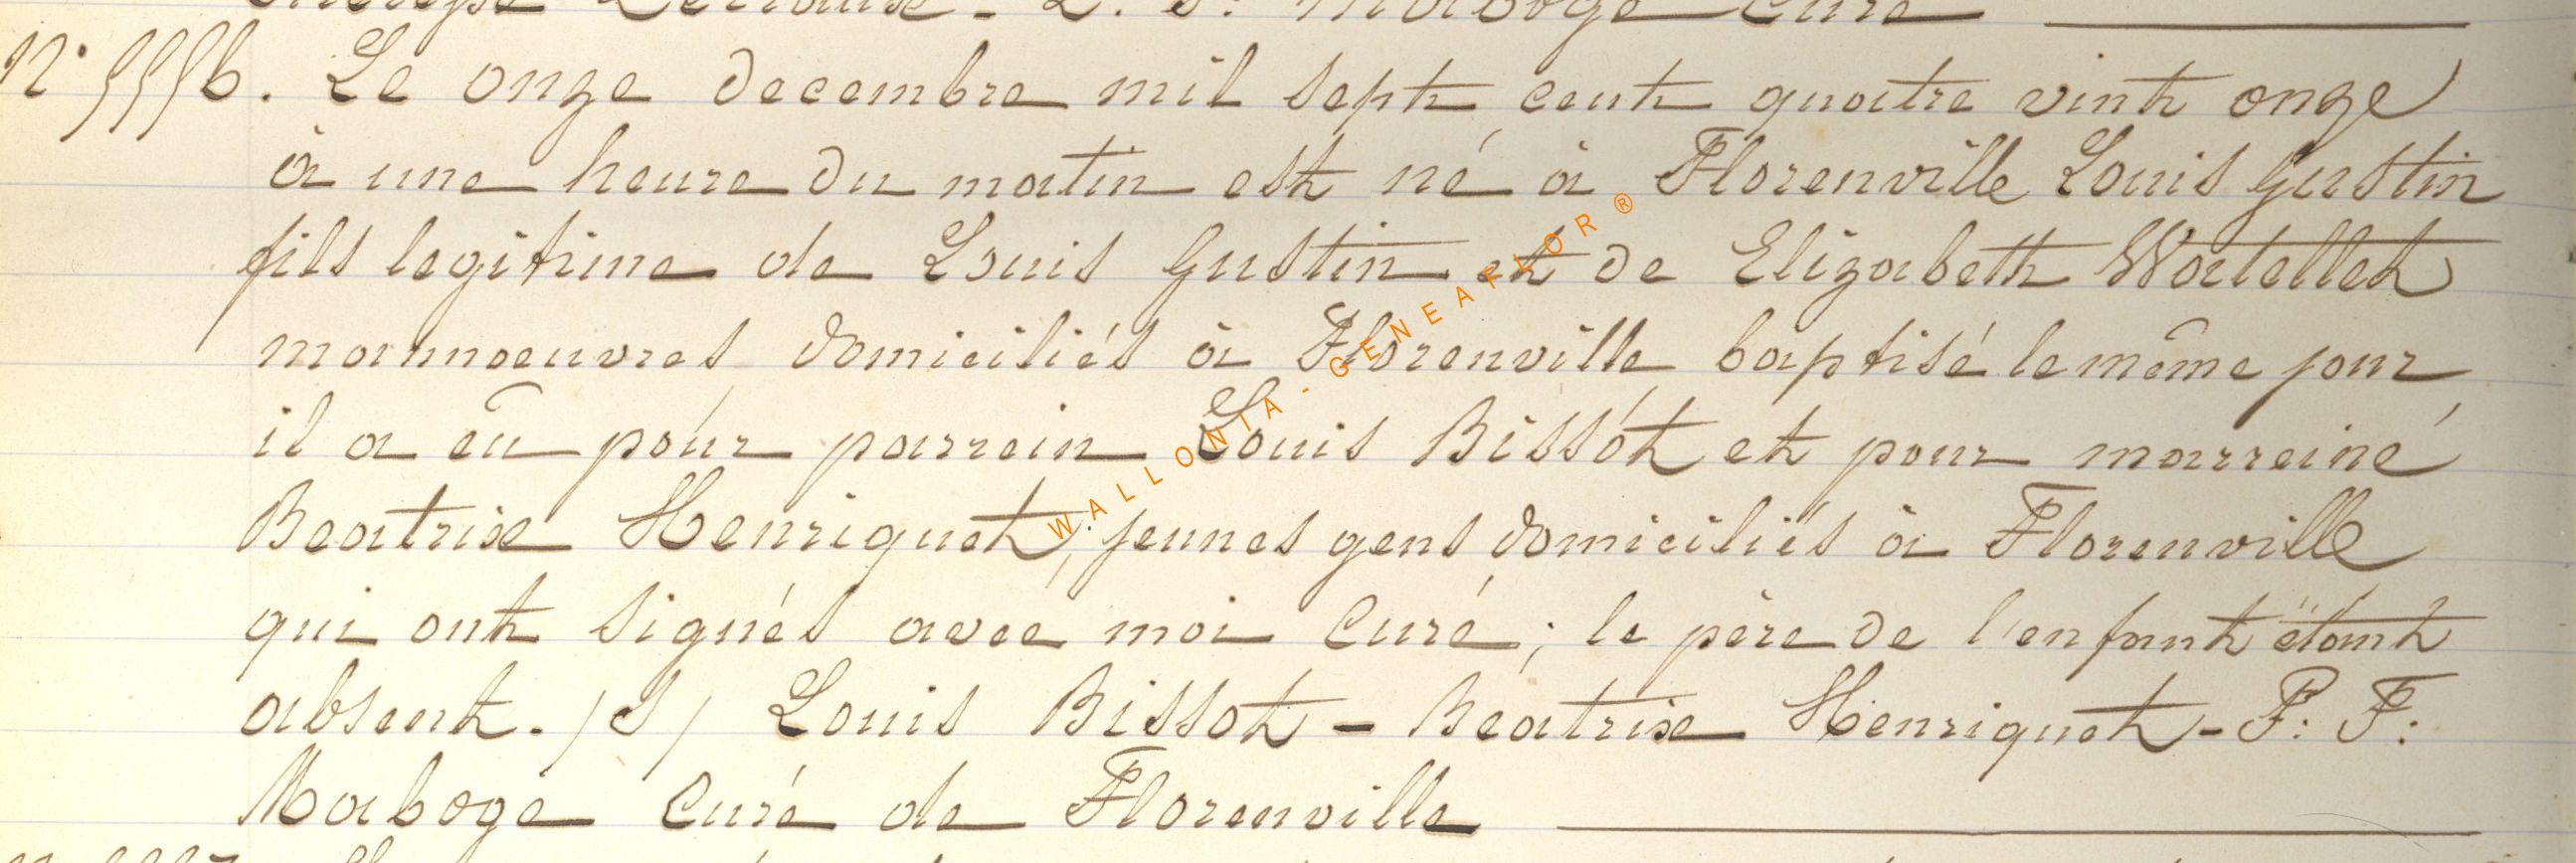 Curé
N° 5556. Le onze decembre mil sept cent quatre vint onze
à une heure du matin est né à Florenville Louis Gustin
fils legitime de Louis Gustin et de Elizabeth Watellet
mannoeuvres domiciliés à Florenville baptisé le même jour
il a eû pour parrein Louis Bissót et pour marreine
Beatrixe Henriquet, jeunes gens domiciliés à Florenville
qui ont signés avec moi Curé; le père de l'enfant étant
absent. /S/ Louis Bissot - Beatrixe Henriquet - P: F:
Maboge Curé de Florenville
WALLONIA - GENEAFLOR ®